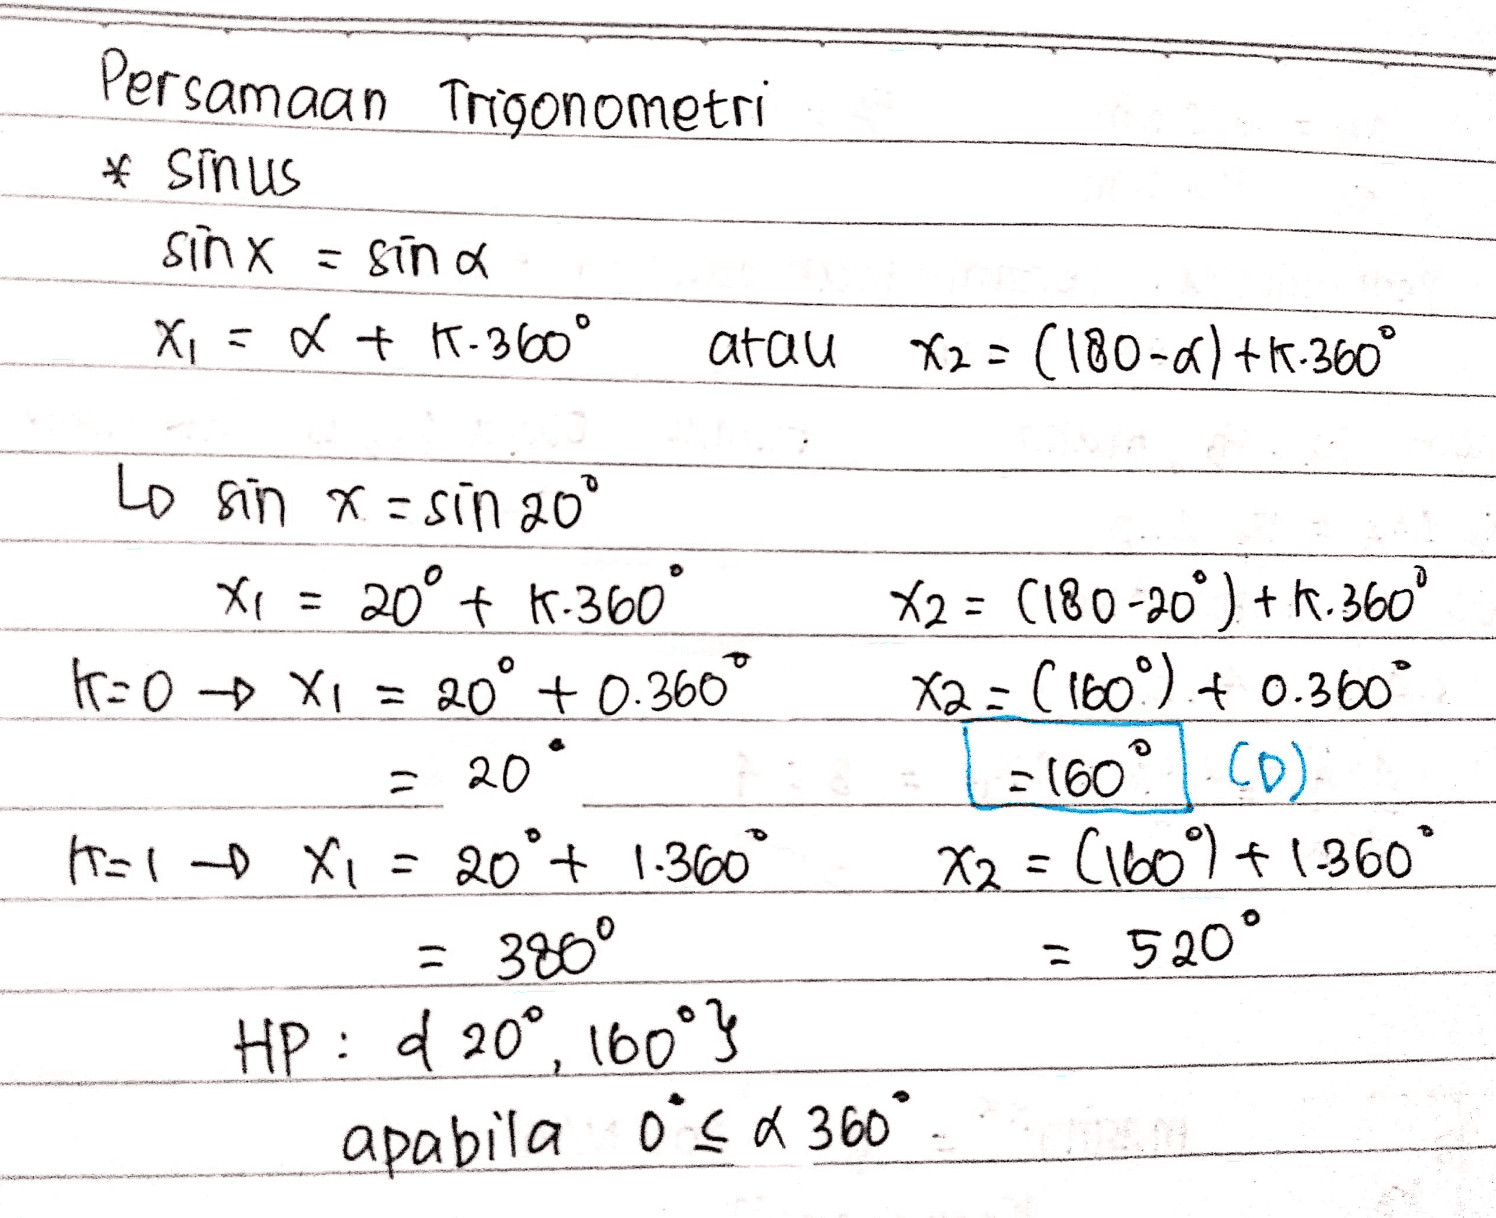 Persamaan Trigonometri
* Sinus
sin x = sin α
x₁ = α + K.360° atau x₂ = (180-α) + K.360°
↳ sin x = sin 20°
x₁ = 20° + K.360° x₂ = (180-20°) + K.360°
K=0 → x₁ = 20° + 0.360° x₂ = (160°) + 0.360°
= 20° = 160° (D)
K=1 → x₁ = 20° + 1.360° x₂ = (160°) + 1.360°
= 380° = 520°
HP : { 20°, 160° }
apabila 0° ≤ α 360°